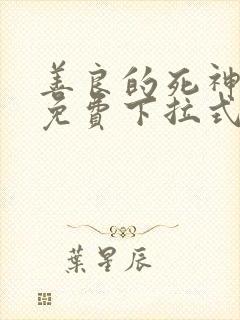 善良的死神
免費下拉式
葉星辰